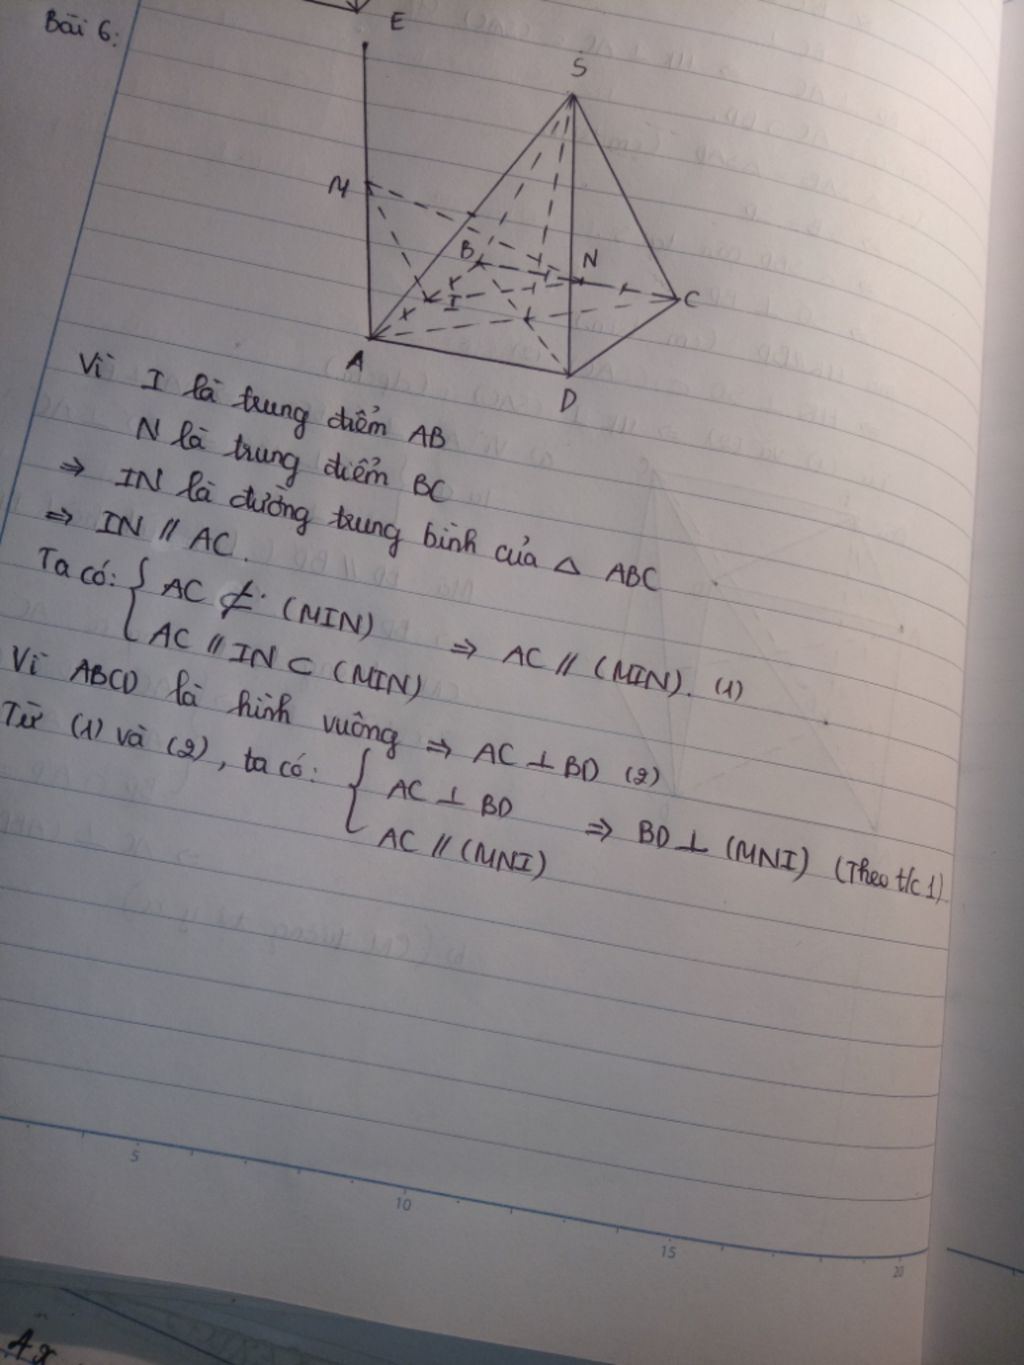 Bài 6:
E
S
M
B
N
I
C
A
D
Vì I là trung điểm AB
N là trung điểm BC
⇒ IN là đường trung bình của △ ABC
⇒ IN // AC.
Ta có: { AC ⊄ (MIN)
AC // IN ⊂ (MIN) ⇒ AC // (MIN). (1)
Vì ABCD là hình vuông ⇒ AC ⊥ BD (2)
Từ (1) và (2), ta có: { AC ⊥ BD
AC // (MNI) ⇒ BD ⊥ (MNI) (Theo t/c 1).
5
10
15
20
Ax